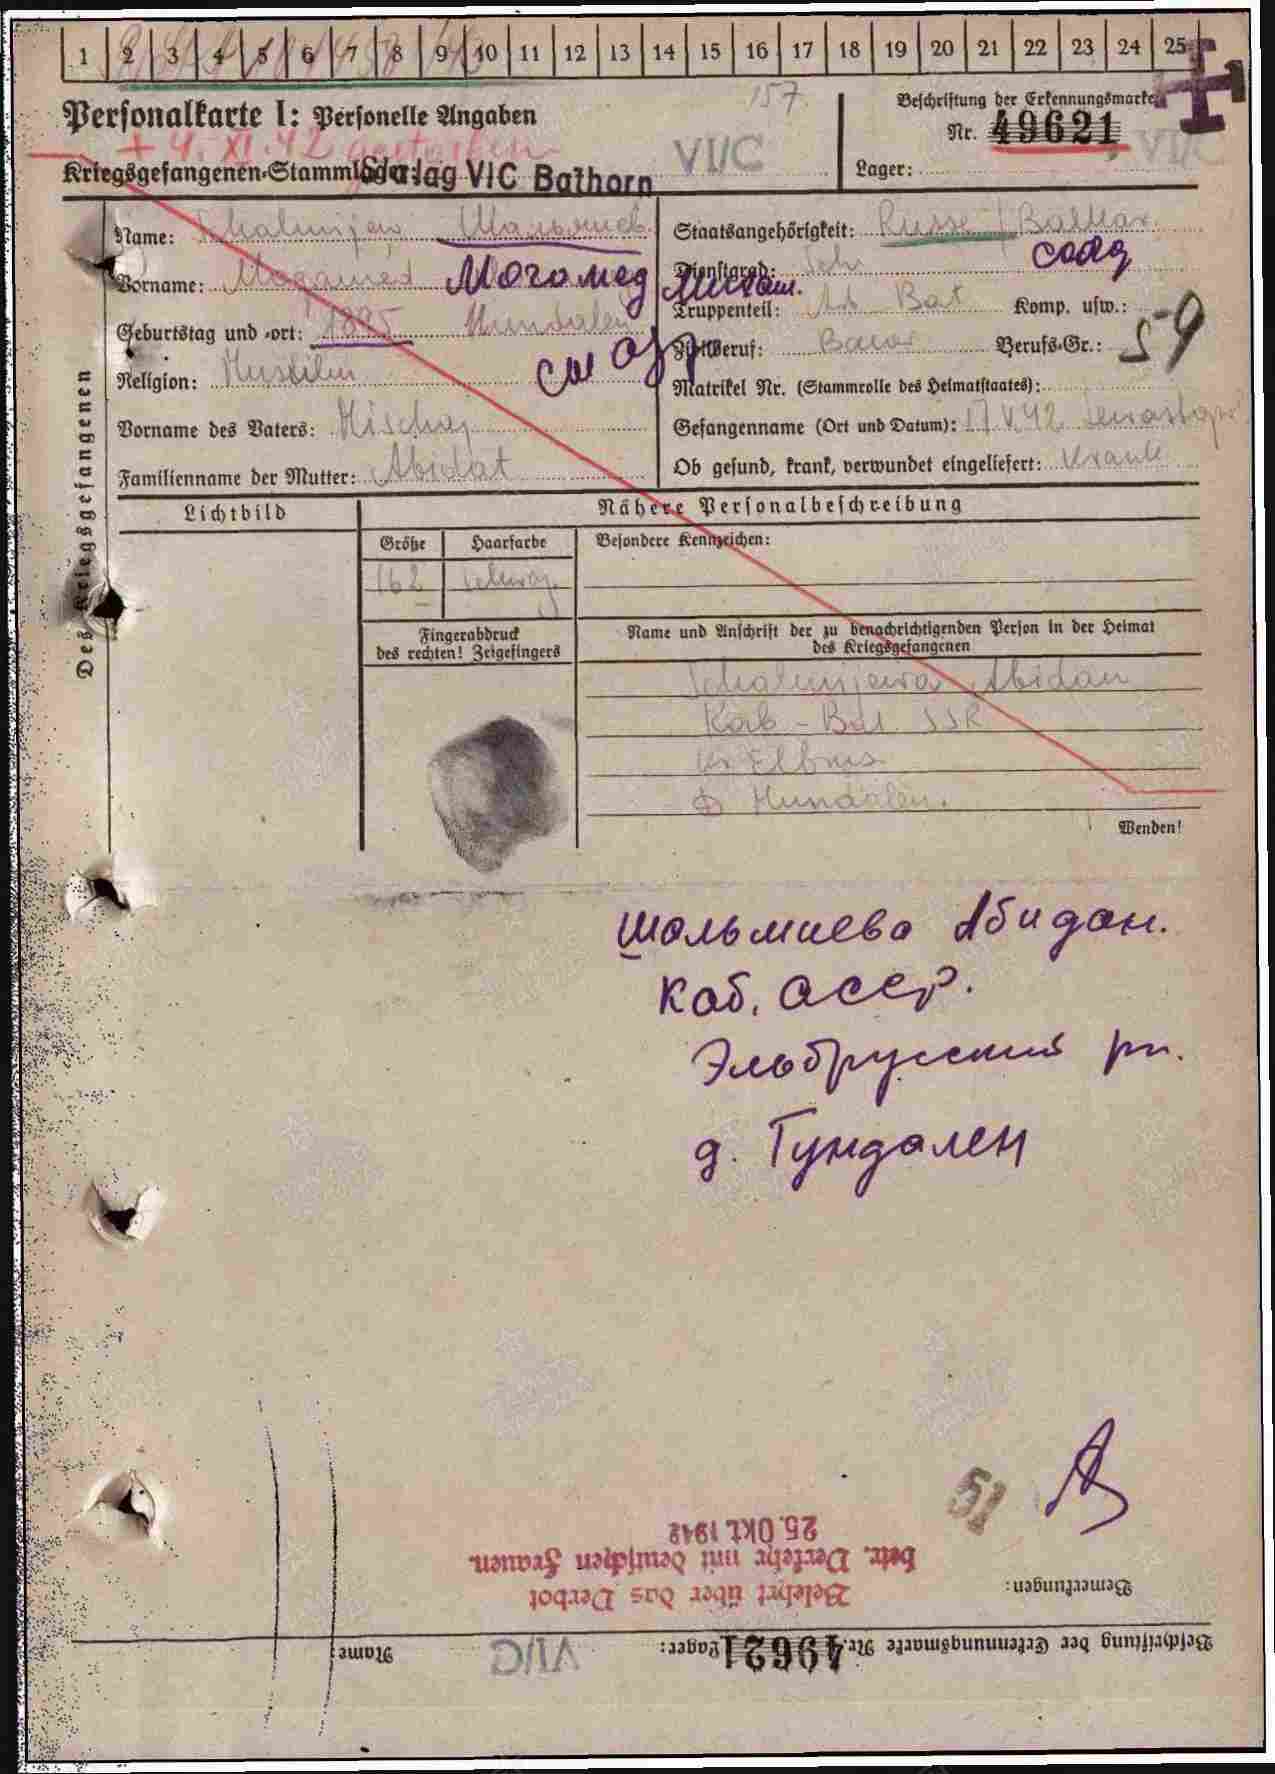 1 2 3 4 5 6 7 8 9 10 11 12 13 14 15 16 17 18 19 20 21 22 23 24 25
157
Personalkarte I: Personelle Angaben
Beschriftung der Erkennungsmarke
Nr. 49621
+ 4. XI. 42 gestorben
VI/C
VI/C
Kriegsgefangenen-Stammlager: Stalag VI C Bathorn
Lager:
Des Kriegsgefangenen
Name: Schalmijew
Staatsangehörigkeit: Russe / Balkar.
Vorname: Mogamed Могомед
Dienstgrad: Sold солд
Truppenteil: Arb Bat
Komp. usw.:
Geburtstag und -ort: 1895 Hundalen
Zivilberuf: Bauer
Berufs-Gr.: 59
Religion: Muslim
Matrikel Nr. (Stammrolle des Heimatstaates):
Vorname des Vaters: Mischaj
Gefangenname (Ort und Datum): 17.V.42 Sewastopol
Familienname der Mutter: Abidat
Ob gesund, krank, verwundet eingeliefert: Krank
Lichtbild
Nähere Personalbeschreibung
Größe
Haarfarbe
Besondere Kennzeichen:
162 schwarz
Fingerabdruck
des rechten! Zeigefingers
Name und Anschrift der zu benachrichtigenden Person in der Heimat
des Kriegsgefangenen
Schalmijewa Abidan
Kab - Bal SSR
Kr Elbrus
D Hundalen.
Wenden!
Шальмиева Абидан.
Каб. АССР.
Эльбрусский рн.
д. Гундален
51
Bemerkungen:
Belehrt über das Verbot
betr. Verkehr mit deutschen Frauen.
25. Okt. 1942
Beschriftung der Erkennungsmarke Nr. 49621 Lager: VI/C
Name: